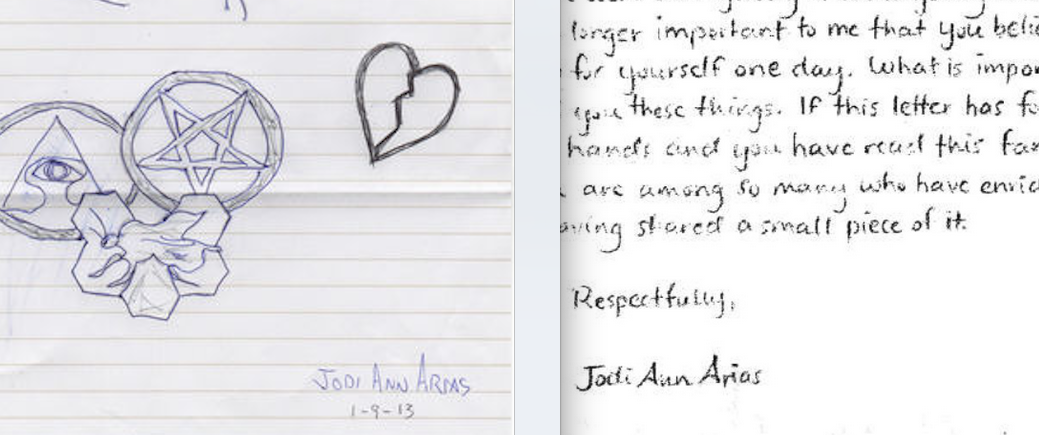 JODI ANN ARIAS
1-9-13
longer important to me that you
for yourself one day. What is
you these things. If this letter has
hands and you have read this far
are among so many who have
having shared a small piece of it.
Respectfully,
Jodi Ann Arias